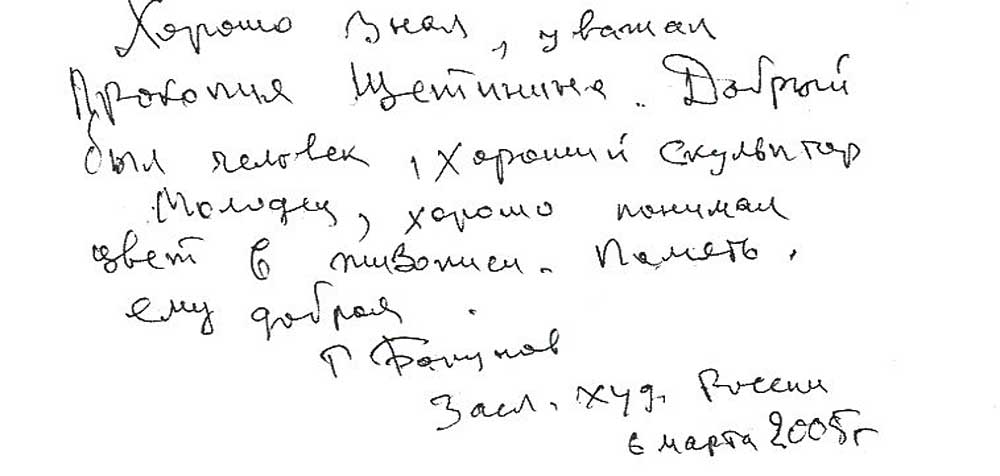 Хорошо знал, уважал
Прокопия Щетинина. Добрый
был человек, хороший скульптор
Молодец, хорошо понимал
цвет в живописи. Память
ему добрая.
Г
Засл. худ. России
6 марта 2005г